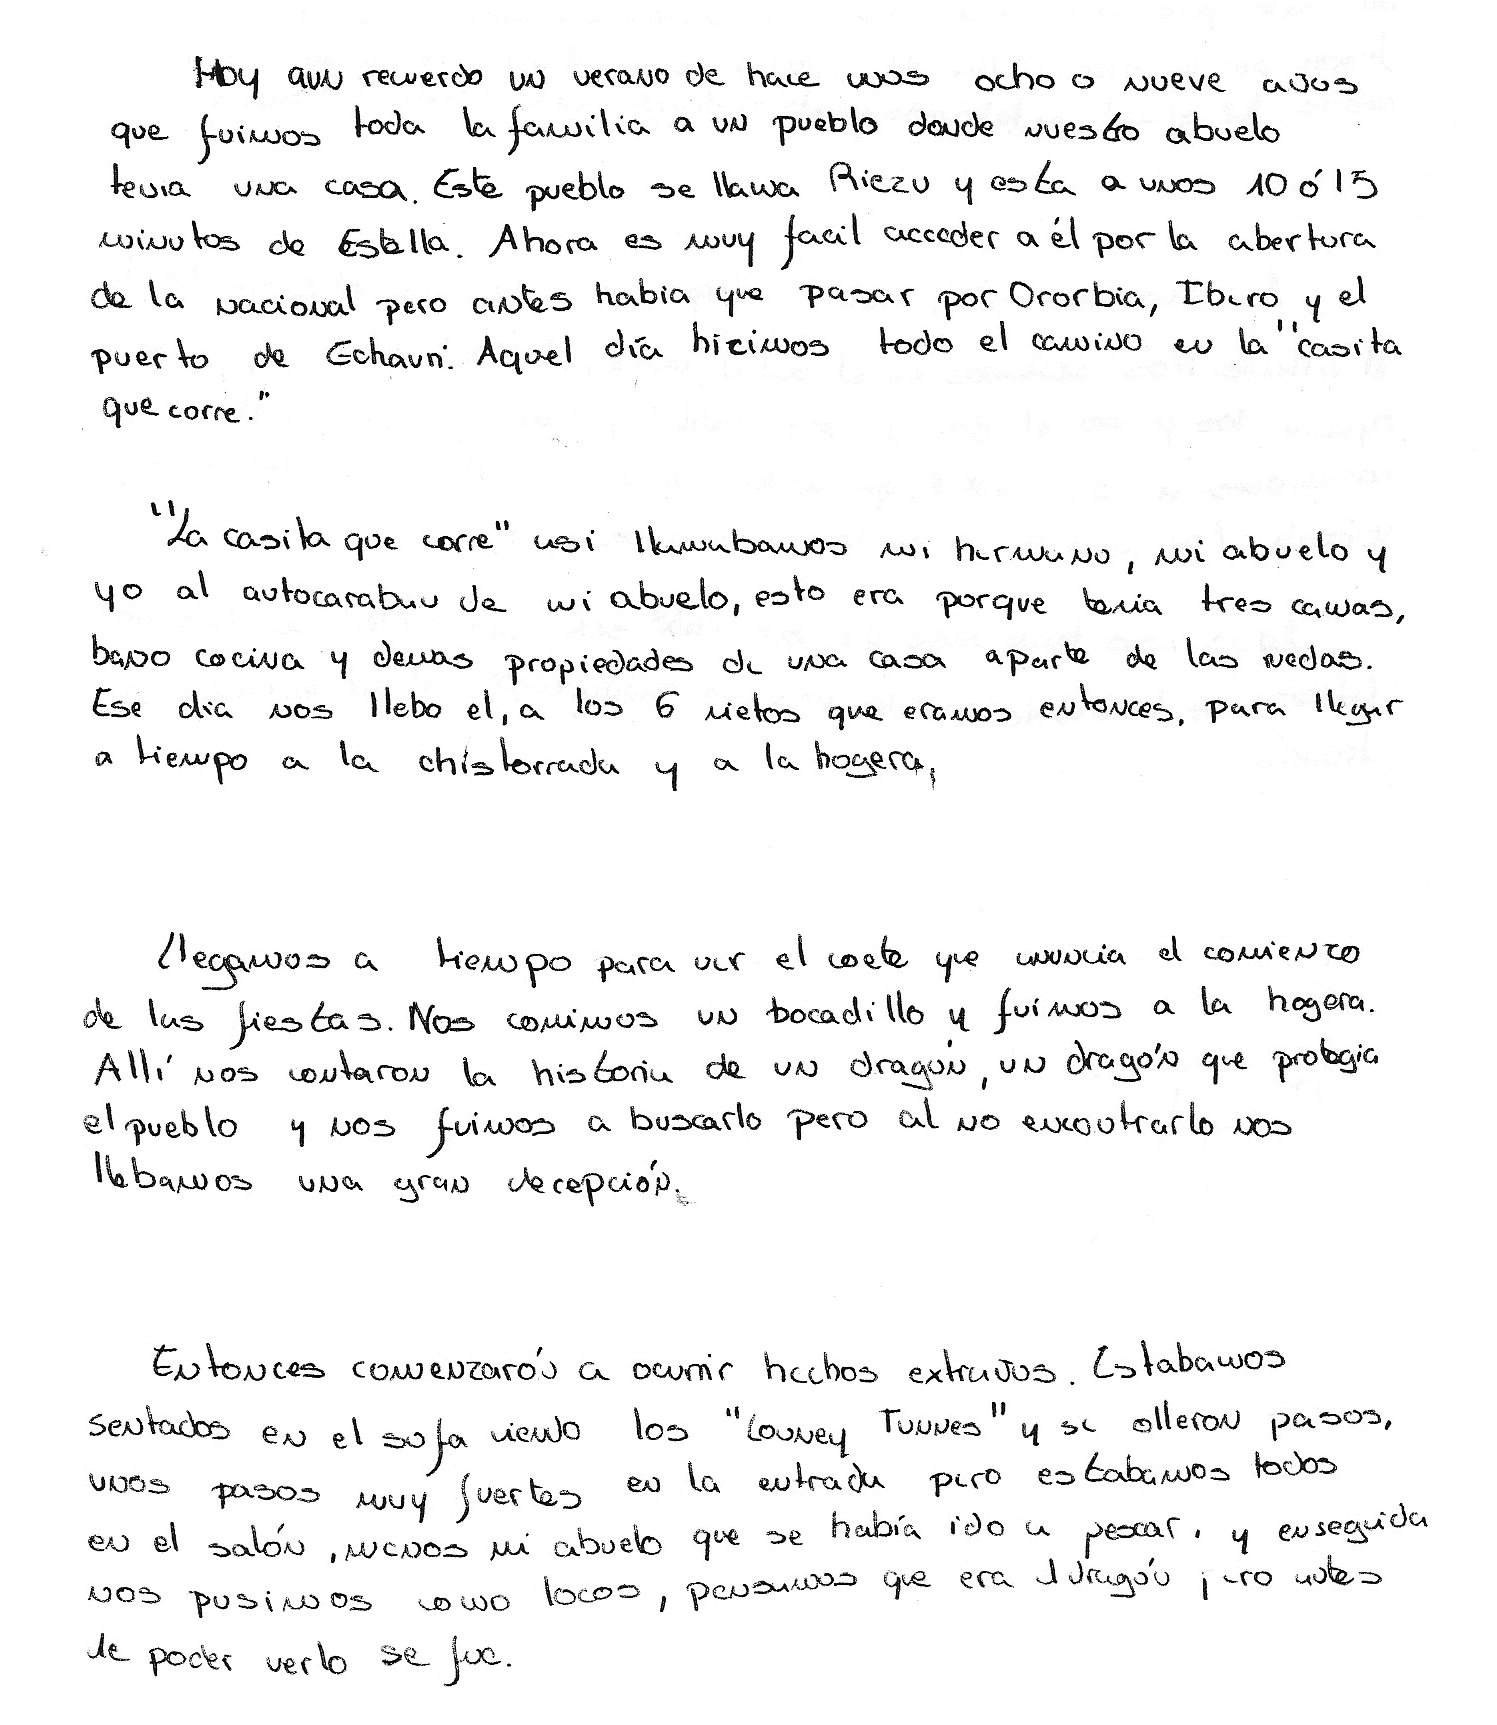 Hoy aun recuerdo un verano de hace unos ocho o nueve años
que fuimos toda la familia a un pueblo donde nuestro abuelo
tenia una casa. Este pueblo se llama Riezu y esta a unos 10 ó 15
minutos de Estella. Ahora es muy facil acceder a él por la abertura
de la nacional pero antes habia que pasar por Ororbia, Ibero y el
puerto de Echauri. Aquel día hicimos todo el camino en la "casita
que corre."
"La casita que corre" asi llamabamos mi hermano, mi abuelo y
yo al autocaraban de mi abuelo, esto era porque tenia tres camas,
baño cocina y demas propiedades de una casa aparte de las ruedas.
Ese dia nos llebo el, a los 6 nietos que eramos entonces, para llegar
a tiempo a la chistorrada y a la hogera,
Llegamos a tiempo para ver el coete que anuncia el comienzo
de las fiestas. Nos comimos un bocadillo y fuimos a la hogera.
Allí nos contaron la historia de un dragón, un dragón que protegia
el pueblo y nos fuimos a buscarlo pero al no encontrarlo nos
llebamos una gran decepción.
Entonces comenzarón a ocurrir hechos extraños. Estabamos
sentados en el sofa viendo los "Louney Tunnes" y se olleron pasos,
unos pasos muy fuertes en la entrada pero estabamos todos
en el salón, menos mi abuelo que se había ido a pescar, y enseguida
nos pusimos como locos, pensamos que era el dragón pero antes
de poder verlo se fue.